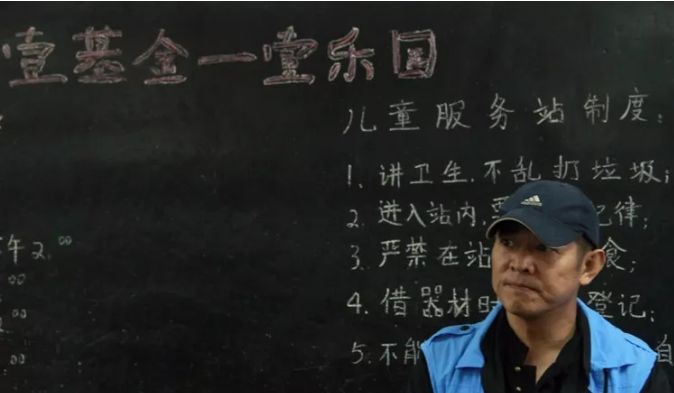 壹基金一壹乐园
儿童服务站制度:
1. 讲卫生.不乱扔垃圾;
2. 进入站内, 律;
3. 严禁在站 食;
4. 借器材时 登记;
5. 不能 自
午 2.00
00
00
00
adidas